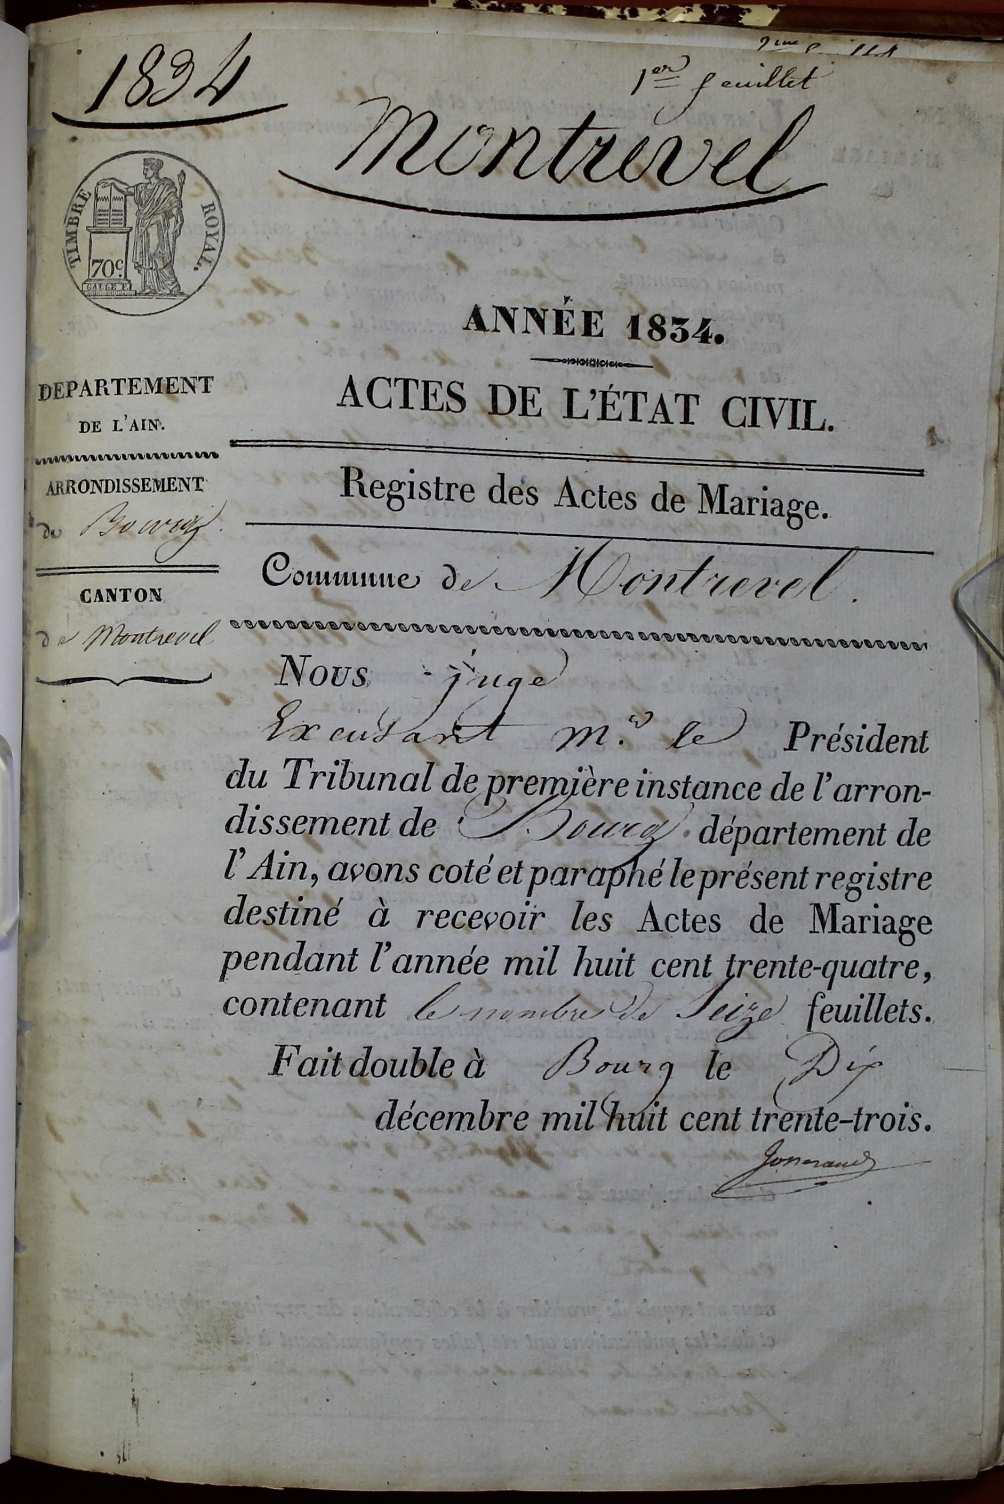 1834
1er feuillet
Montrevel
TIMBRE ROYAL.
70c
ANNÉE 1834.
ACTES DE L'ÉTAT CIVIL.
DEPARTEMENT
DE L'AIN.
ARRONDISSEMENT
de Bourg
CANTON
de Montrevel
Registre des Actes de Mariage.
Commune de Montrevel.
Nous juge
Excusant mr. le Président
du Tribunal de première instance de l'arron-
dissement de Bourg. département de
l'Ain, avons coté et paraphé le présent registre
destiné à recevoir les Actes de Mariage
pendant l'année mil huit cent trente-quatre,
contenant le nombre de Seize feuillets.
Fait double à Bourg le Dix
décembre mil huit cent trente-trois.